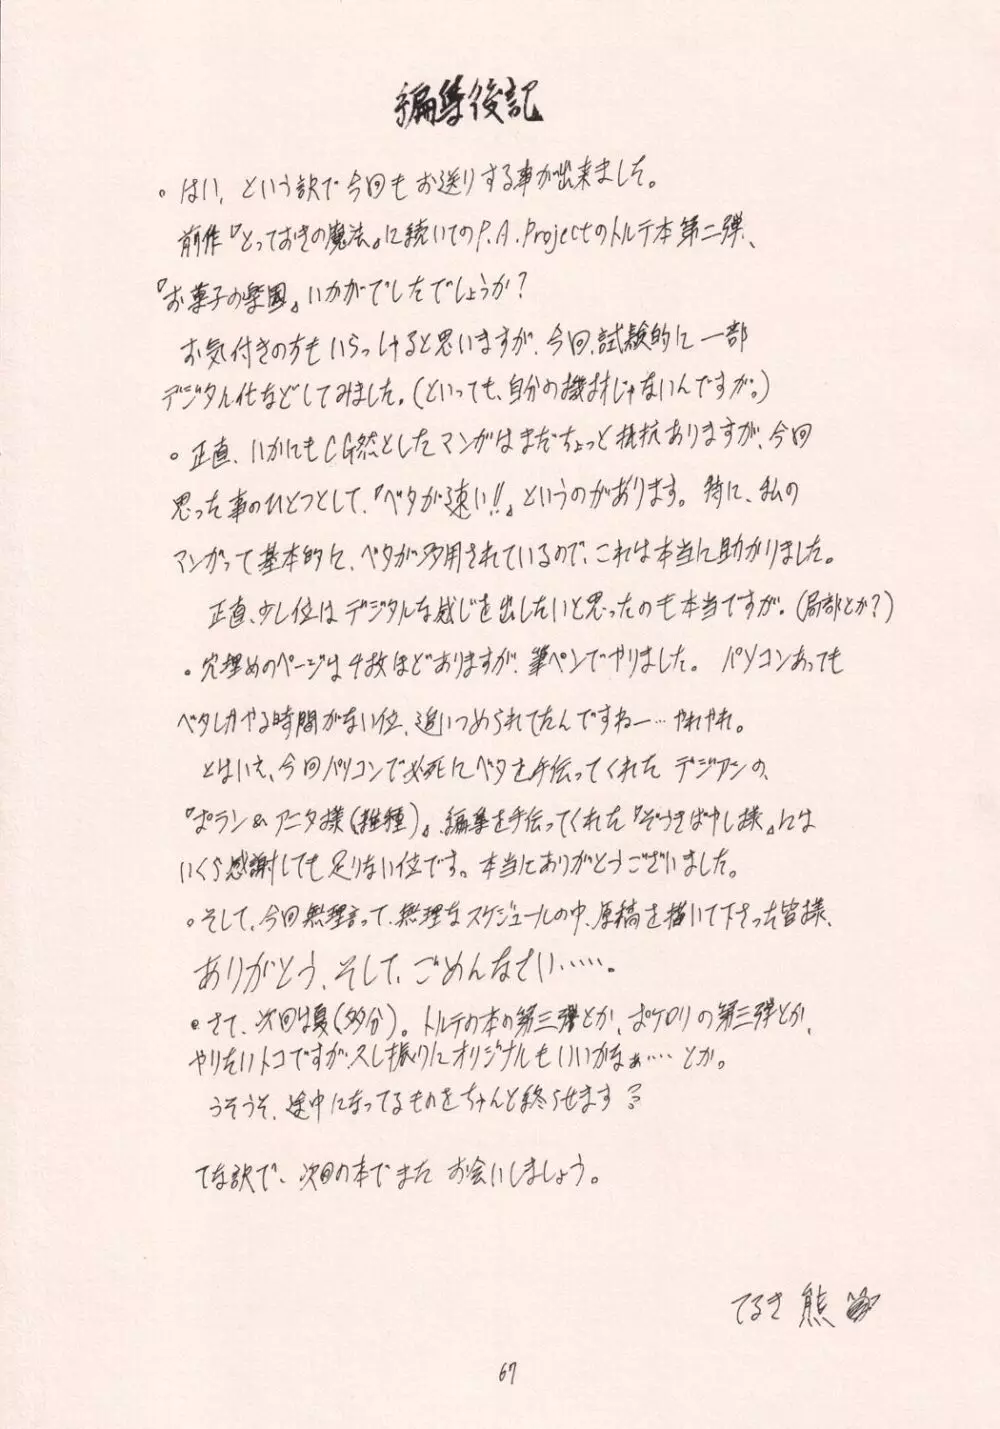 編集後記
。はい、という訳で今回もお送りする事が出来ました。
前作『とっておきの魔法』に続いてのP.A.Projectのトルテ本第二弾、
『お菓子の楽園』いかがでしたでしょうか?
お気付きの方もいらっしゃると思いますが、今回、試験的に一部
デジタル化などしてみました。(といっても、自分の機材じゃないんですが。)
。正直、いかにもCG然としたマンガはまだちょっと抵抗ありますが、今回
思った事のひとつとして、『ベタが速い!!』というのがあります。特に、私の
マンガって基本的に、ベタが多用されているので、これは本当に助かりました。
正直、少し位はデジタルな感じを出したいと思ったのも本当ですが。(局部とか?)
。穴埋めのページは4枚ほどありますが、筆ペンでやりました。パソコンあっても
ベタしかやる時間がない位、追いつめられてたんですねー…やれやれ。
とはいえ、今回パソコンで必死にベタを手伝ってくれたデジアシの、
『ポラン&アニタ様(雑種)』、編集を手伝ってくれた『ぞうきばやし様』には
いくら感謝しても足りない位です。本当にありがとうございました。
。そして、今回無理言って、無理なスケジュールの中、原稿を描いて下さった皆様、
ありがとう、そして、ごめんなさい……。
。さて、次回は夏(多分)。トルテの本の第三弾とか、の第三弾とか、
やりたいトコですが、久し振りにオリジナルもいいかなぁ……とか。
うそうそ、途中になってるものをちゃんと終らせます?
てな訳で、次回の本でまたお会いしましょう。
てるき熊
67